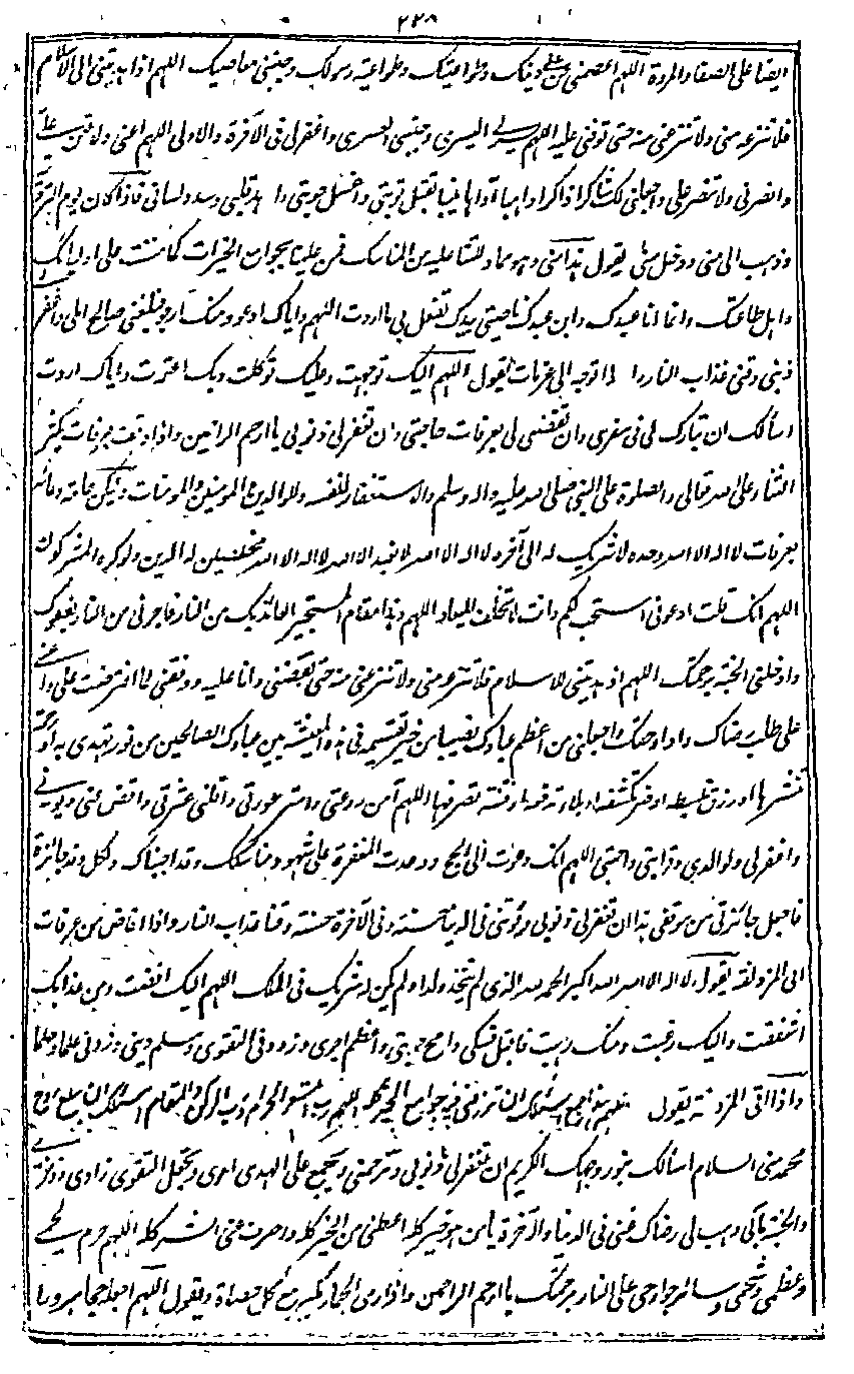 ٢٢٨
ايضا على الصفا والمروة اللهم اعصمني بدينك وطواعيتك وطواعية رسولك وجنبني معاصيك اللهم اذ هديتني الى الاسلام
فلا تنزعه مني ولا تنزعني منه حتى توفني عليه اللهم يسرلي اليسرى وجنبني العسرى واغفرلي في الآخرة والاولى اللهم اعني ولا تعن علي
وانصرني ولا تنصر علي واجعلني لك شاكرا ذاكرا راهبا اواها منيبا تقبل توبتي واغسل حوبتي واهد قلبي وسدد لساني فاذا كان يوم التروية
وذهب الى منى ودخل منى يقول هذا منى وهو مما دللتنا عليه من المناسك فمن علينا بجوامع الخيرات كما مننت على اوليائك
واهل طاعتك وانما انا عبدك وابن عبدك ناصيتي بيدك تفعل بي ما اردت اللهم واياك ادعو ومنك ارجو فبلغني صالح املي واغفر
ذنبي وقني عذاب النار واذا توجه الى عرفات يقول اللهم اليك توجهت وعليك توكلت وبك اعتززت واياك اردت
اسألك ان تبارك لي في سفري وان تقضي لي بعرفات حاجتي وان تغفرلي ذنوبي يا ارحم الراحمين واذا وقف بعرفات يكثر
الثناء على الله تعالى والصلوة على النبي صلى الله عليه واله وسلم والاستغفار لنفسه ولوالديه والمؤمنين والمؤمنات وليكن عامة دعائه
بعرفات لا اله الا الله وحده لا شريك له الى آخره لا اله الا الله لا نعبد الا الله لا اله الا الله مخلصين له الدين ولو كره المشركون
اللهم انك قلت ادعوني استجب لكم وانت لا تخلف الميعاد اللهم وهذا مقام المستجير العائذ بك من النار فاجرني من النار بعفوك
وادخلني الجنة برحمتك اللهم اذ هديتني للاسلام فلا تنزعه مني ولا تنزعني منه حتى تقبضني وانا عليه ووفقني لما افترضت علي واعني
على طلب رضاك واداء حقك واجعلني من اعظم عبادك نصيبا من خير تقسيمه في هذه العشية بين عبادك الصالحين من نور تهدي به او رحمة
تنشرها او رزق تبسطه او ضر تكشفه او بلاء ترفعه او فتنة تصرفها اللهم آمن روعتي واستر عورتي واقلني عثرتي واقض عني ديوني
واغفرلي ولوالدي وقرابتي واحبتي اللهم انك دعوت الى الحج ووعدت المغفرة على شهود مناسكك وقد اجبناك ولكل وفد جائزة
فاجعل جائزتي من موقفي هذا ان تغفرلي ذنوبي وتؤتني في الدنيا حسنة وفي الآخرة حسنة وقنا عذاب النار واذا افاض من عرفات
الى المزدلفة يقول لا اله الا الله الله اكبر الحمد لله الذي لم يتخذ ولدا ولم يكن له شريك في الملك اللهم اليك افضت ومن عذابك
اشفقت واليك رغبت ومنك رهبت فاقبل نسكي وامح حوبتي واعظم اجري وزودني التقوى وسلم ديني وزدني علما وحلما
واذا اتى المزدلفة يقول اللهم هذا جمع اسئلك ان ترزقني فيه جوامع الخير كله اللهم رب المشعر الحرام ورب الركن والمقام اسئلك ان تبلغ روح
محمد مني السلام اسألك بنور وجهك الكريم ان تغفرلي ذنوبي وترحمني وتجمع على الهدى امري وتجعل التقوى زادي وذخري
والجنة مآبي وهب لي رضاك عني في الدنيا والآخرة يا من هو خير كله اعطني من الخير كله واصرف عني الشر كله اللهم حرم لحمي
وعظمي وشحمي وسائر جوارحي على النار برحمتك يا ارحم الراحمين واذا رمى الجمار يكبر مع كل حصاة ويقول اللهم اجعله حجا مبرورا